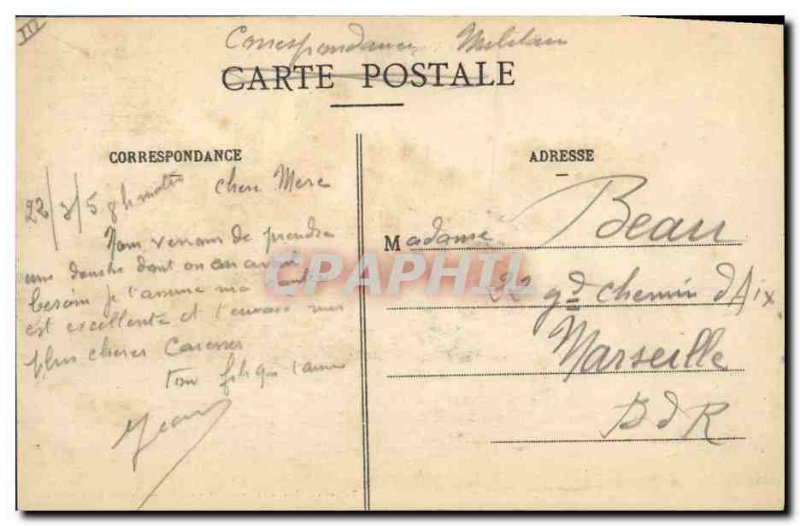 III
Correspondance Militaire
CARTE POSTALE
CORRESPONDANCE
22/3/5 8h matin
chere Mere
Nous venons de prendre
une douche dont on en avait
besoin je t'assure ma santé
est excellente et t'envoie mes
plus cheres Caresses
Ton fils qui t'aime
Jean
ADRESSE
Madame Beau
22 gd chemin d'Aix
Marseille
B d R
CPAPHIL